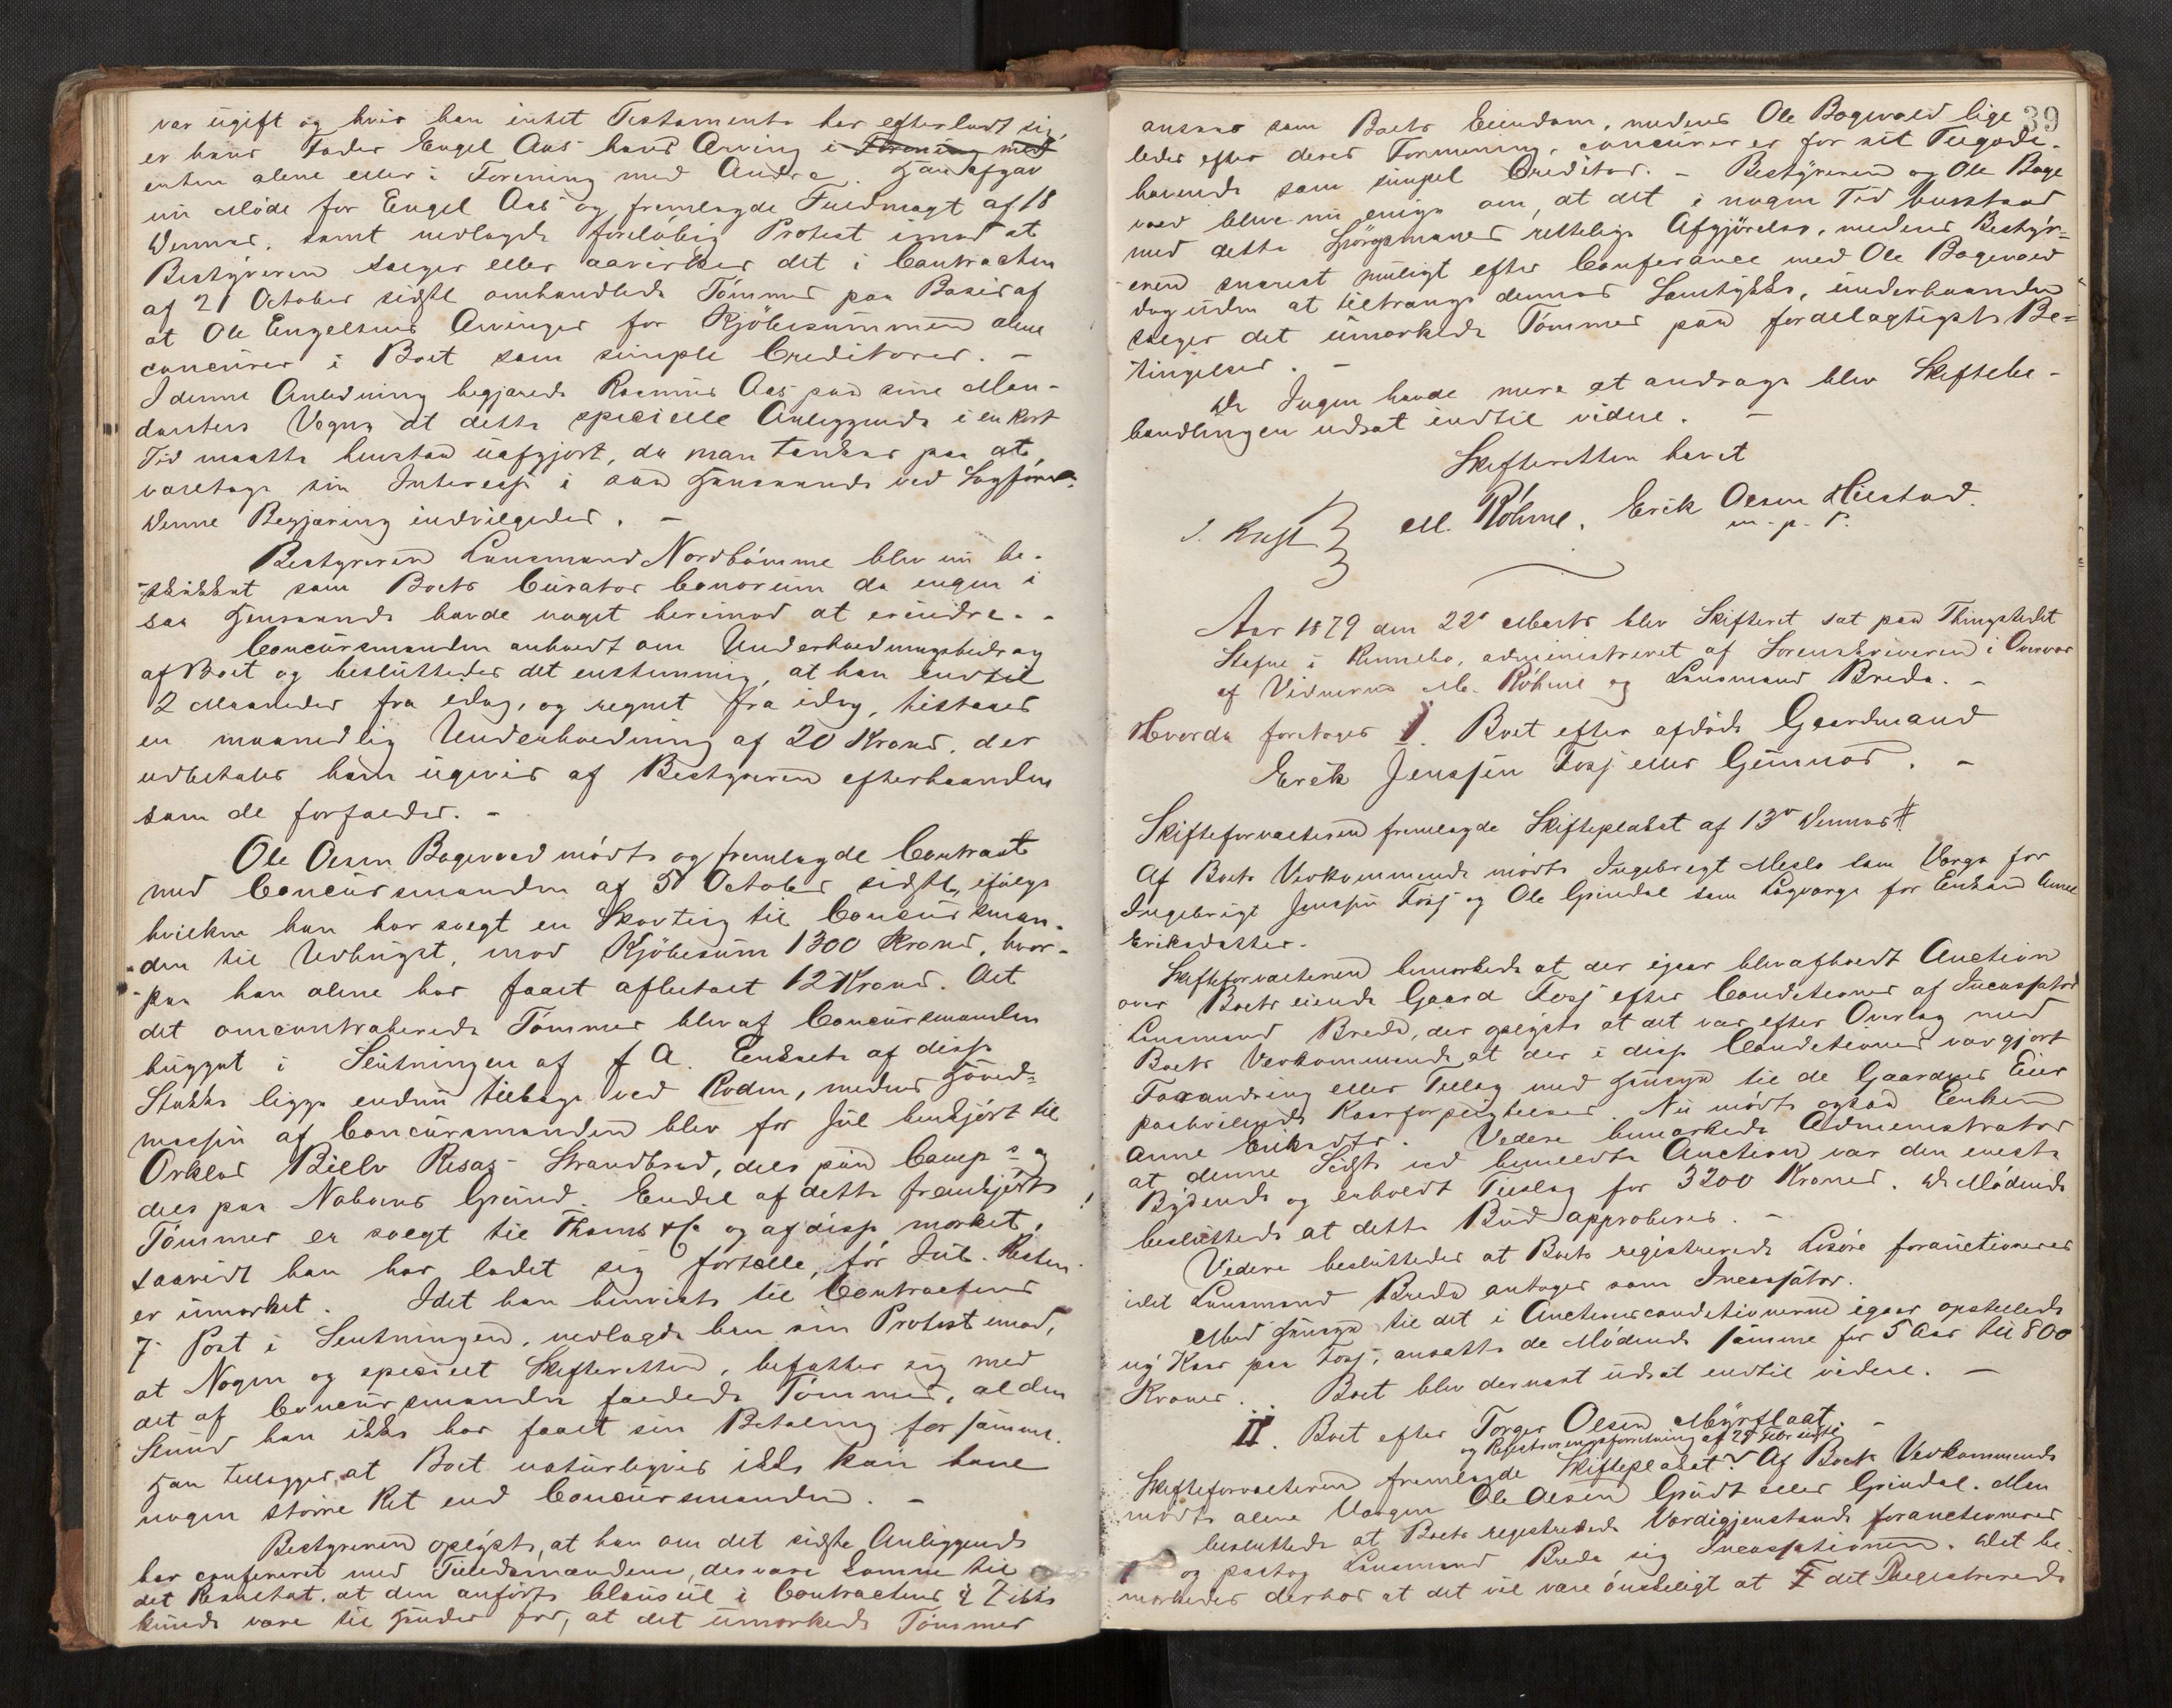 var ugift og hvis han intet Testamente har efterladt sig,
er hans Fader Engel Aas hans Arving i Forening med
enten alene eller i Forening med Andre. Han afgav
nu Møde for Engel Aas og fremlagde Fuldmagt af 18
Dennes, samt nedlagde foreløbig Protest imod at
Bestyreren sælger eller aavirker det i Contracten
af 21 October sidstl omhandlede Tømmer paa Basis af
at Ole Engelsens Arvinger for Kjøbesummen alene
concurrer i Boet som simple Creditorer. -
I denne Anledning begjærede Rasmus Aas paa sine Man-
danters Vegne at dette specielle Anliggende i en kort
Tid maatte henstaa uafgjort, da man tænker paa at
varetage sin Interesse i saa Henseende ved Sagfører.
Denne Begjæring indvilgedes. -
Bestyreren Lensmand Nordbømme blev nu be-
skikket som Boets Curator bonorum da ingen i
saa Henseende havde noget herimod at erindre. -
Concursmanden anholdt om Underholdningsbidrag
af Boet og besluttedes det enstemmig, at han indtil
2 Maaneder fra idag, og regnet fra idag, tilstaaes
en maanedlig Underholdning af 20 Kroner, der
udbetales ham ugevis af Bestyreren efterhaanden
som de forfalder. -
Ole Olsen Bagevold mødte og fremlagde Contract
med Concursmanden af 5 October sidstl, ifølge
hvilken han har solgt en Skovteig til Concursman-
den til Udhugst, mod Kjøbesum 1300 Kroner, hvor-
paa han alene har faaet afbetalt 12 Kroner. Alt
det omcontraherede Tømmer blev af Concursmanden
hugget i Slutningen af f A. Enkelte af disse
Stokke ligge endnu tilbage ved Roden, medens Hoved-
massen af Concursmanden blev før Jul henkjørt til
Orklas Bielv Resas Strandbred, dels paa Camps og
dels paa Naboens Grund. Endel af dette fremkjørte
Tømmer er solgt til Thams & Co og af disse mærket,
saavidt han har ladet sig fortælle, før Jul. Resten
er umærket. Idet han henviste til Contractens
7 Post i Slutningen, nedlagde han sin Protest imod,
at Nogen og specielt Skifteretten, befatter sig med
det af Concursmanden fældede Tømmer, al den
Stund han ikke har faaet sin Betaling for samme.
Han tillægger, at Boet naturligvis ikke kan have
nogen større Ret end Concursmanden. -
Bestyreren oplyste, at han om det sidste Anliggende
har confereret med Tillidsmændene, der vare komne til
det Resultat, at den anførte Clausul i Contractens § 7 ikke
kunde være til Hinder for, at det umærkede Tømmer
39
ansees som Boets Eiendom, medens Ole Bagevold lige
ledes efter deres Formening, concurrerer for sit Tilgode-
havende som simpel Creditor. - Bestyreren og Ole Bage
vold bleve nu enige om, at det i nogen Tid henstaar
med dette Spørgsmaals rettelige Afgjørelse, medens Bestyr-
eren snarest muligt efter Conferance med Ole Bagevold
dog uden at tiltrænge dennes Samtykke, underhaanden
sælger det umærkede Tømmer paa fordelagtigste Be-
tingelser. -
Da Ingen havde mere at andrage blev Skiftebe-
handlingen udsat indtil videre. -
Skifteretten hævet
J. Krefft M. Røhme. Erik Olsen Hilstad.
m. p. P.
Aar 1879 den 22de Marts blev Skifteret sat paa Thingstedet
Stefne i Rennebo, administreret af Sorenskriveren i Overvær
af Vidnerne M. Røhme og Lensmand Breda. -
Hvorda foretoges I. Boet efter afdøde Gaardmand
Erik Jenssen Fosj eller Gunnes. -
Skifteforvalteren fremlagde Skifteplakat af 13de Dennes #
Af Boets Vedkommende mødte Ingebrigt Meslo som Værge for
Ingebrigt Jenssen Fosj og Ole Grindal som Lagværge for Enken Anne
Eriksdatter.
Skifteforvalteren bemærkede at der igaar blev afholdt Auction
over Boets eiende Gaard Fosj efter Conditioner af Incassator
Lensmand Breda, der oplyste at det var efter Overlæg med
Boets Vedkommende, at der i disse Conditioner var gjort
Forandring eller Tillæg med Hensyn til de Gaardens Eier
paahvilende Kaarforpligtelser. Nu mødte ogsaa Enken
Anne Eriksdtr. Videre bemærkede Administrator
at denne Sidste ved bemeldte Auction var den eneste
Bydende og erholdt Tilslag for 3200 Kroner. De Mødende
besluttede at dette Bud approberes. -
Videre besluttedes at Boets registrerede Løsøre forauctioneres
idet Lensmand Breda antages som Incassator.
Med Hensyn til det i Auctionsconditionerne igaar opstillede
ny Kaar paa Fosj, ansatte de Mødende samme for 5 Aar til 800
Kroner. Boet blev dernæst udsat indtil videre. -
II. Boet efter Torger Olsen Myrflaat -
og Registreringsforretning af 27 Febr sidstl
Skifteforvalteren fremlagde Skifteplakat. Af Boets Vedkommende
mødte alene Værgen Ole Olsen Grudt eller Grindal. Man
besluttede at Boets registrerede Værdigjenstande forauctioneres
og paatog Lensmand Breda sig Incassationen. Det be-
mærkedes derhos at det vil være ønskeligt at det Registrerede